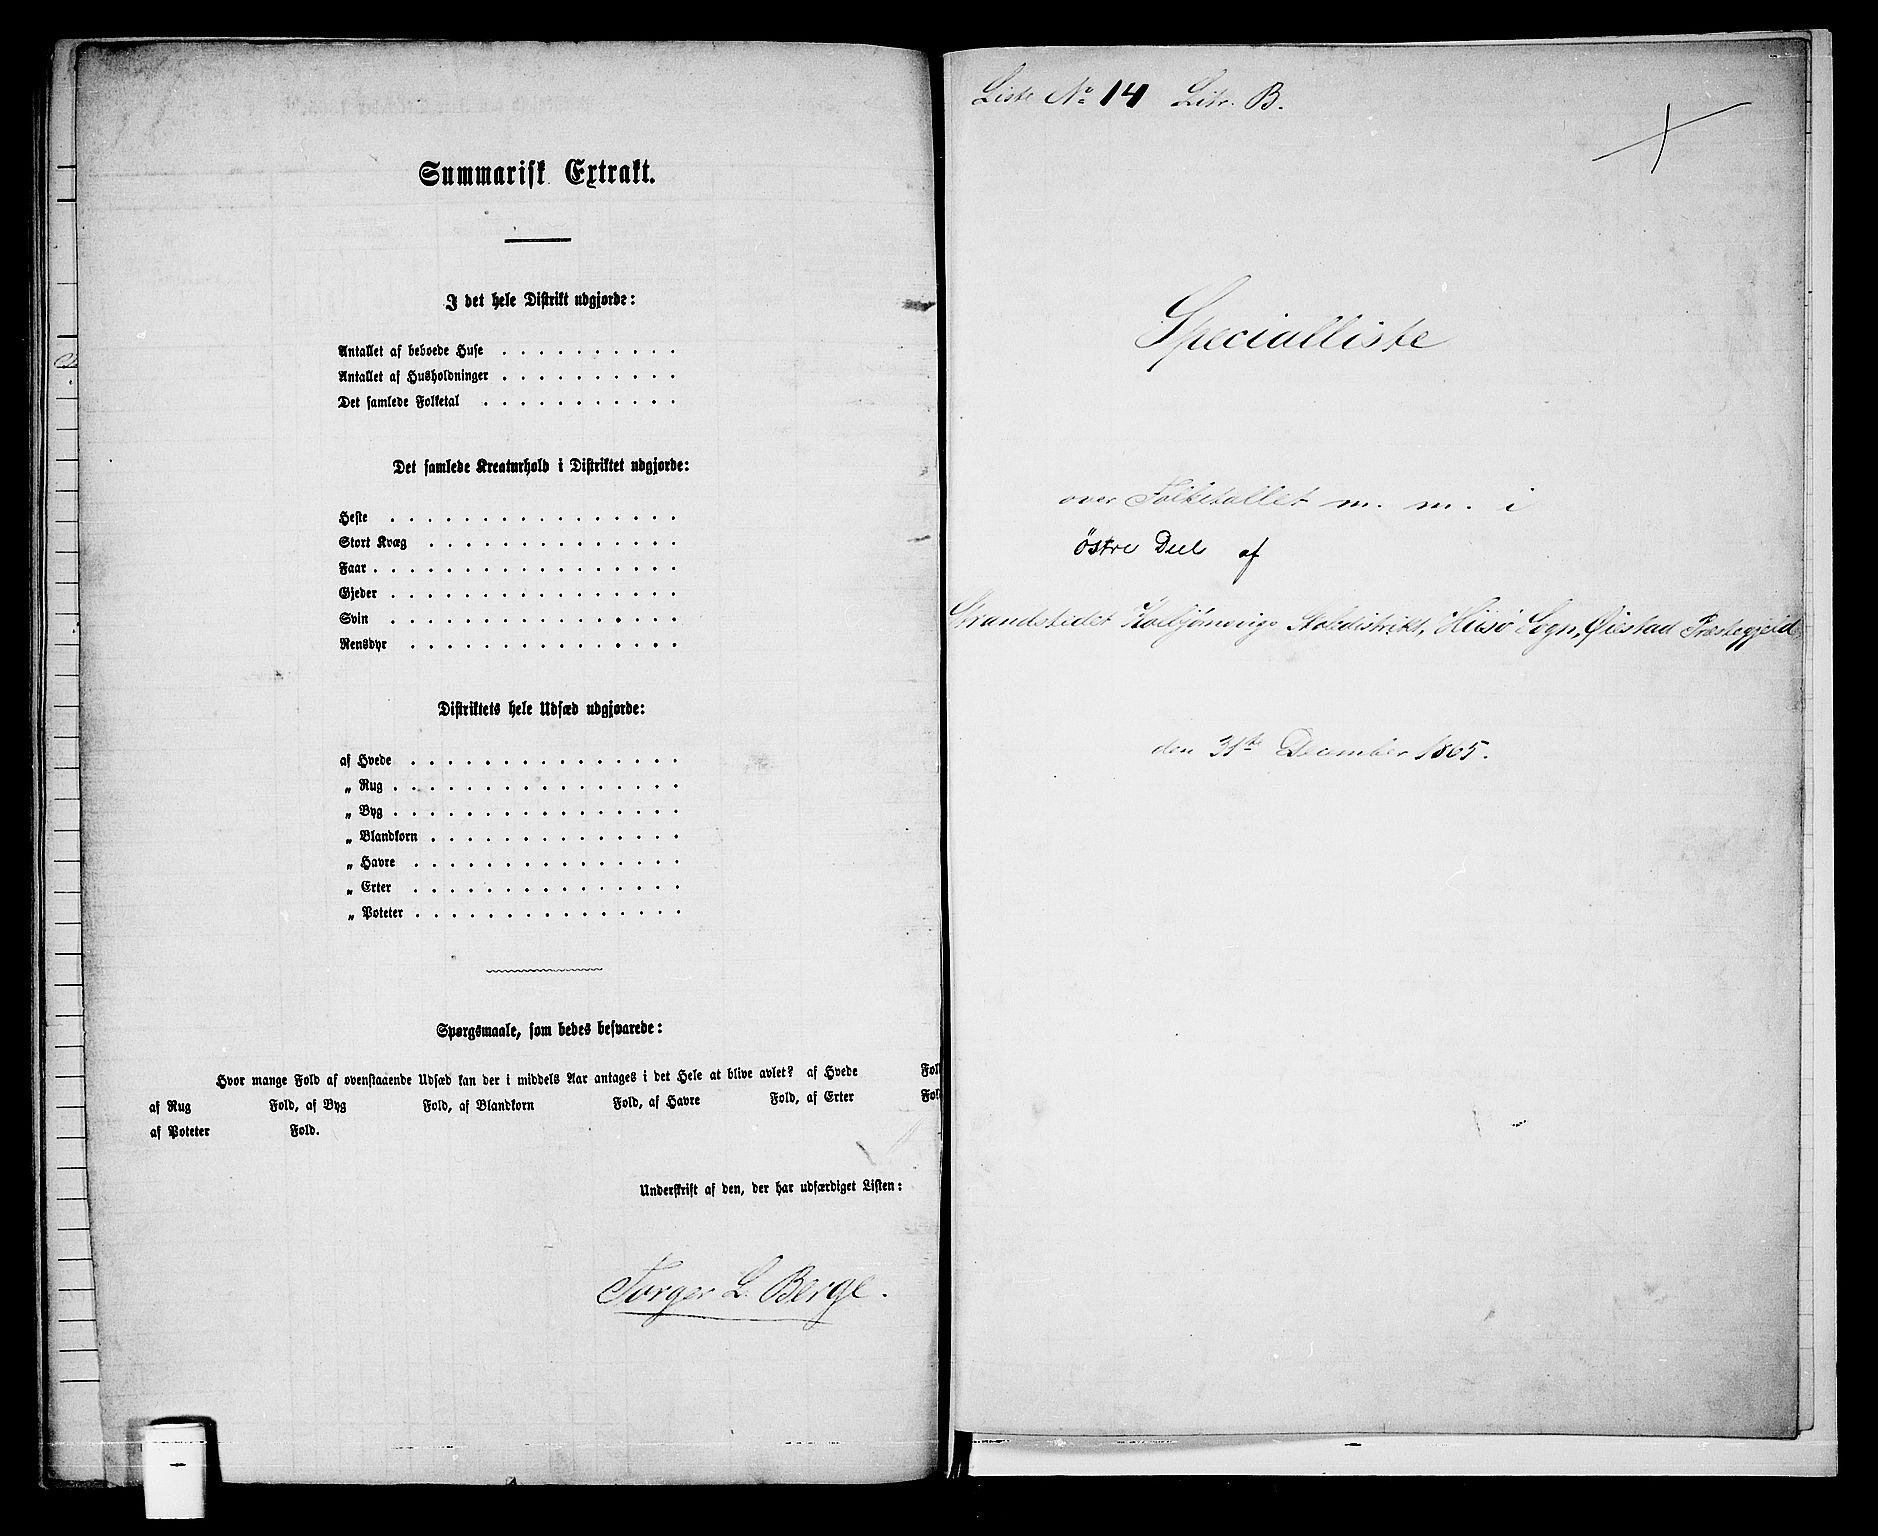 Summarisk Extrakt.
I det hele Distrikt udgjorde:
Antallet af beboede Huse . . . . . . . . . .
Antallet af Husholdninger . . . . . . . . . .
Det samlede Folketal . . . . . . . . . . .
Det samlede Kreaturhold i Distriktet udgjorde:
Heste . . . . . . . . . . . . . . . . .
Stort Kvæg . . . . . . . . . . . . . .
Faar . . . . . . . . . . . . . . . . .
Gjeder . . . . . . . . . . . . . . . . .
Svin . . . . . . . . . . . . . . . . .
Rensdyr . . . . . . . . . . . . . . .
Distriktets hele Udsæd udgjorde:
af Hvede . . . . . . . . . . . . . . .
„ Rug . . . . . . . . . . . . . . . .
„ Byg . . . . . . . . . . . . . . . .
„ Blandkorn . . . . . . . . . . . . . .
„ Havre . . . . . . . . . . . . . . .
„ Erter . . . . . . . . . . . . . . .
„ Poteter . . . . . . . . . . . . . . .
Spørgsmaale, som bedes besvarede:
Hvor mange Fold af ovenstaaende Udsæd kan der i middels Aar antages i det Hele at blive avlet? af Hvede Fold
af Rug Fold, af Byg Fold, af Blandkorn Fold, af Havre Fold, af Erter Fold
af Poteter Fold.
Underskrift af den, der har udfærdiget Listen:
Torger L. Berge.
Liste No 14 Litr. B.
Specialliste
over Folketallet m. m. i
östre Deel af
Strandstedet Kolbjønsvigs Skoledistrikt, Hisø Sogn, Øiestad Præstegjeld
den 31te December 1865.